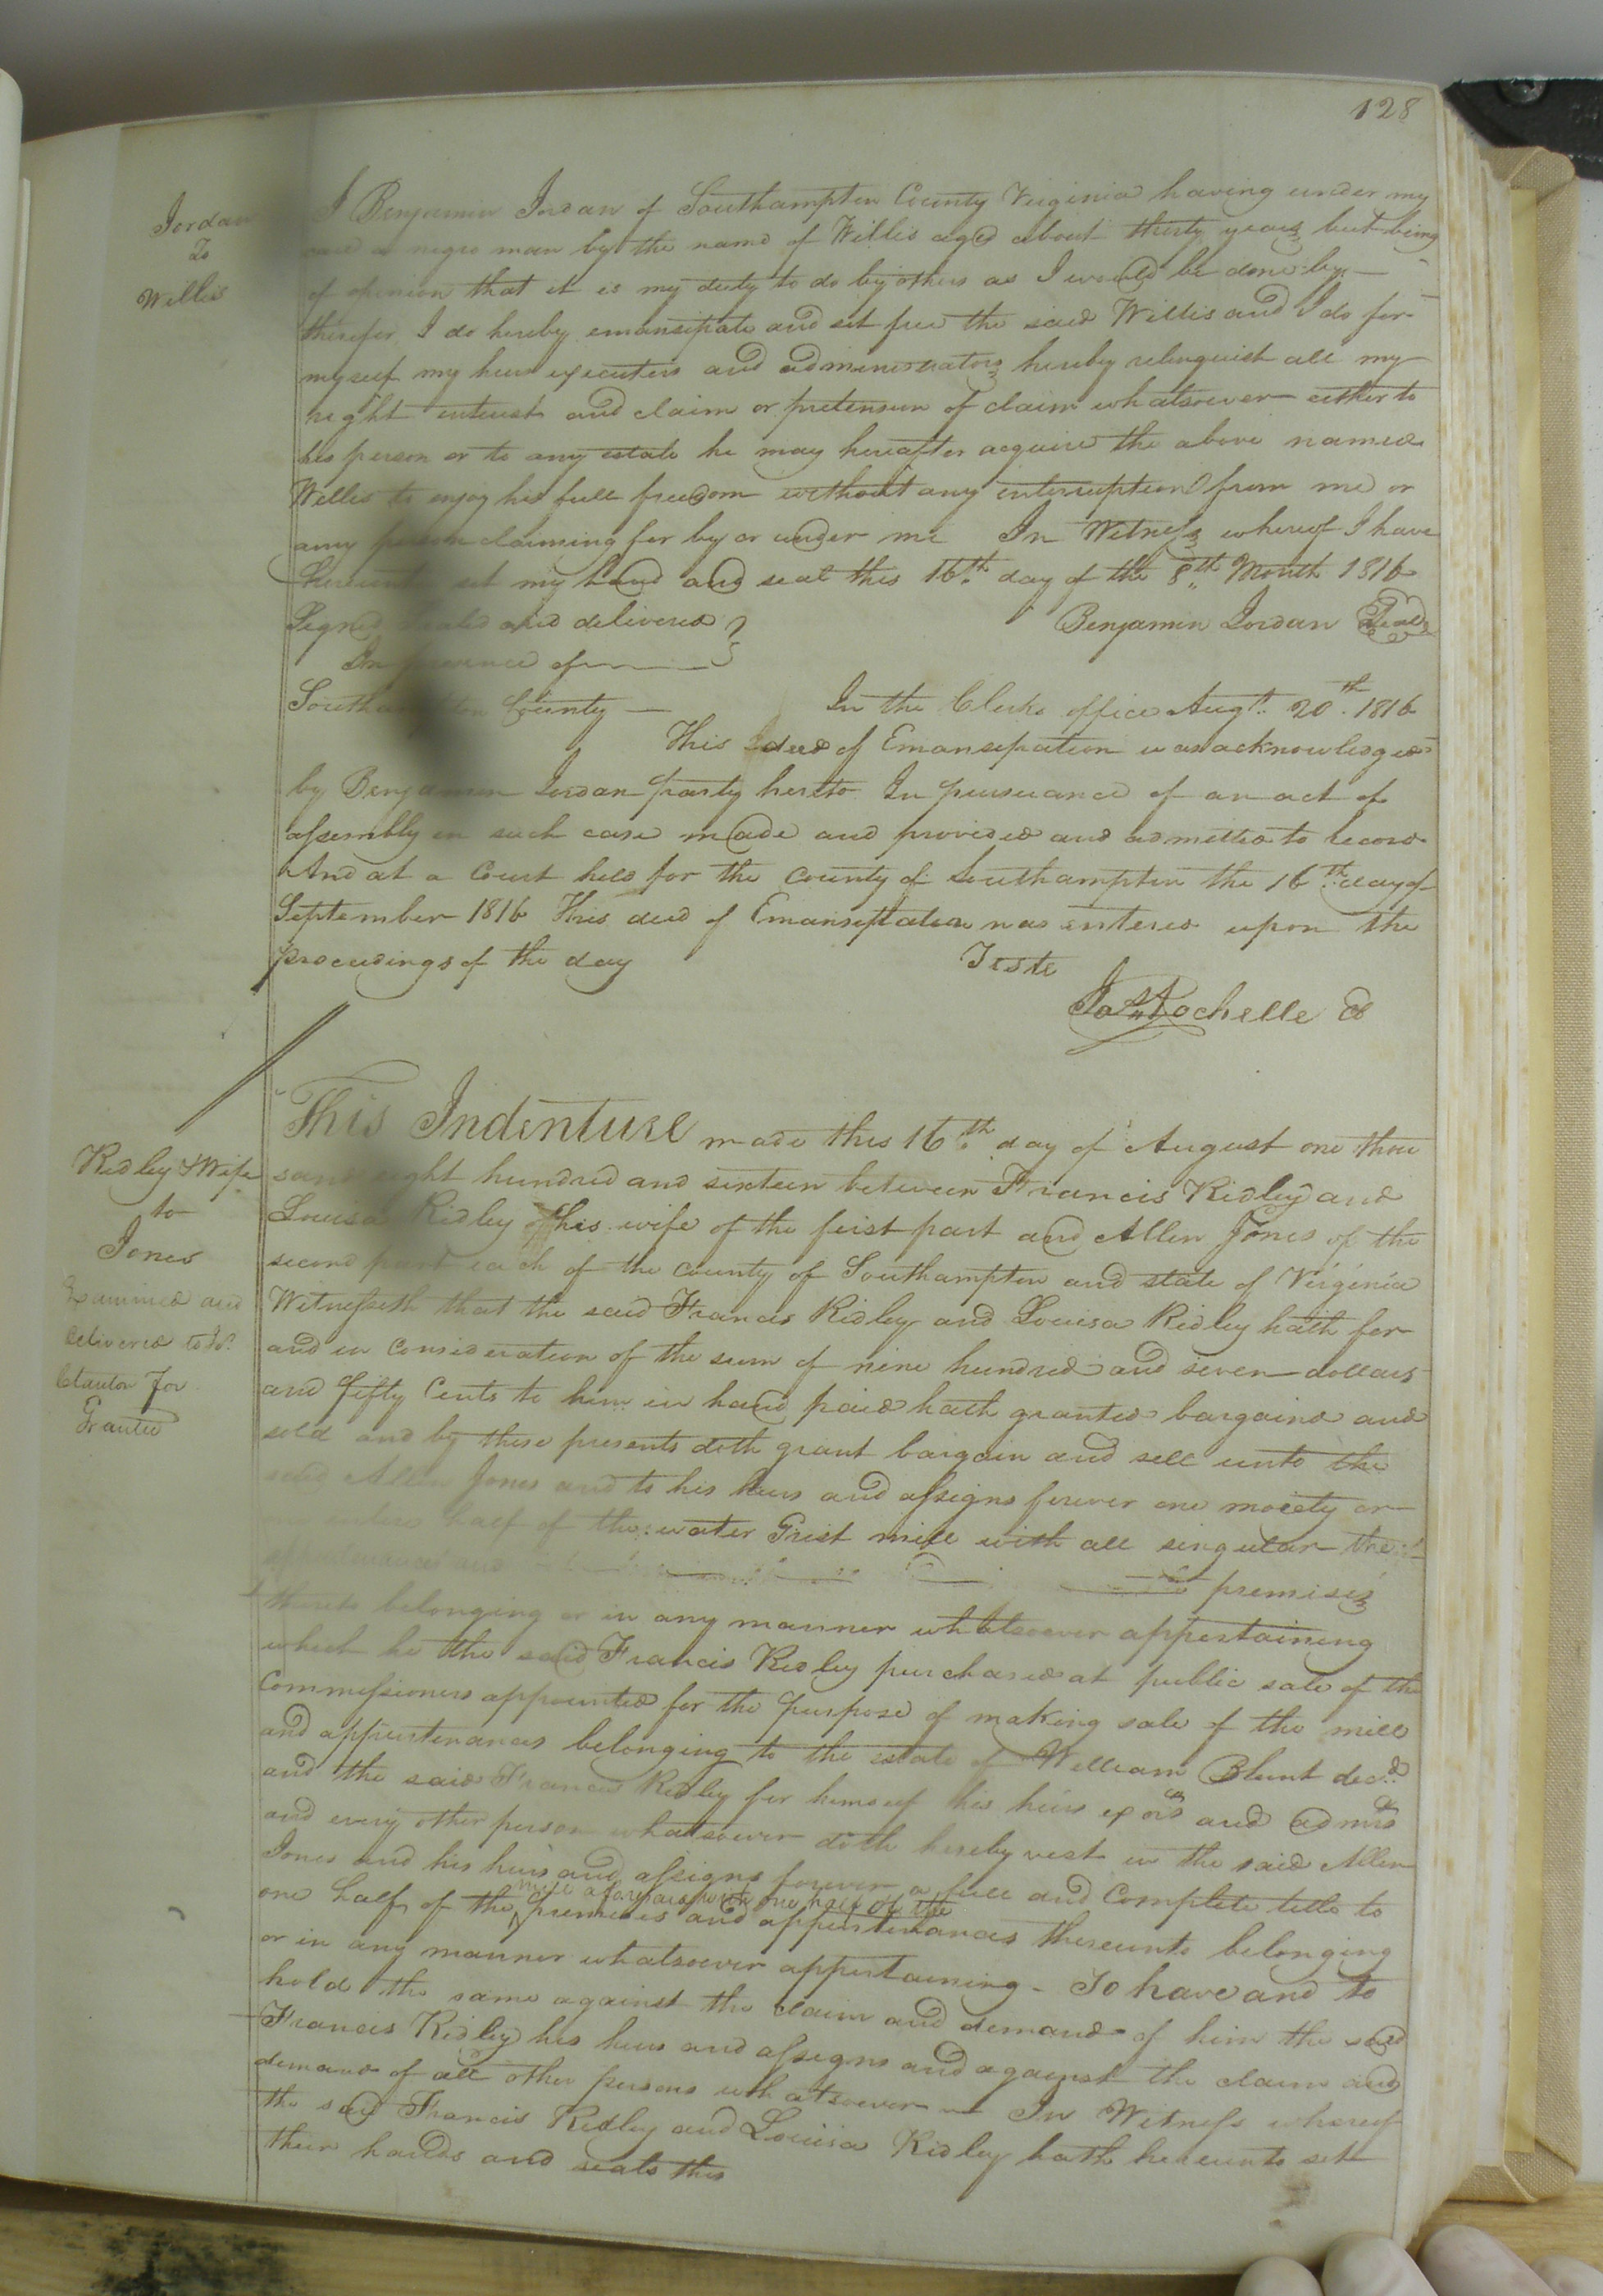 128
Jordan
To
Willis
I Benjamin Jordan of Southampton County Virginia having under my
care a negro man by the name of Willis aged about thirty years but being
of opinion that it is my duty to do by others as I would be done by
therefor I do hereby emansipate and set free the said Willis and I do for
myself my heirs executers and administrators hereby relinquish all my
right interest and claim or pretension of claim whatsoever either to
his person or to any estate he may hereafter acquire the above named
Willis to enjoy his full freedom without any interruption from me or
any person claiming for by or under me In Witness whereof I have
hereunto set my hand and seal this 16th day of the 8th Month 1816
Signed Sealed and delivered
Benjamin Jordan Seal
In presence of
Southampton County — In the Clerks office Augt. 20th. 1816
This deed of Emansipation was acknowledged
by Benjamin Jordan party hereto In pursuance of an act of
assembly in such case made and provided and admitted to record
And at a Court held for the county of Southampton the 16th day of
September 1816 This deed of Emansipation was entered upon the
proceedings of the day Teste
Jas Rochelle Cl
Ridley & Wife
to
Jones
Examined and
delivered to
for
Grantee
This Indenture made this 16th day of August one thou
sand eight hundred and sixteen between Francis Ridley and
Louisa Ridley his wife of the first part and Allen Jones of the
second part each of the county of Southampton and state of Virginia
Witnesseth that the said Francis Ridley and Louisa Ridley hath for
and in consideration of the sum of nine hundred and seven dollars
and fifty Cents to him in hand paid hath granted bargaind and
sold and by these presents doth grant bargain and sell unto the
said Allen Jones and to his heirs and assigns forever one moiety or
one entire half of the water Grist mill with all singular the
appurtenances and premises
thereto belonging or in any manner whatsoever appertaining
which he the said Francis Ridley purchased at public sale of the
Commissioners appointed for the purpose of making sale of the mill
and appurtenances belonging to the estate of William Blunt decd.
and the said Francis Ridley for himself his heirs exors and admrs
and every other person whatsoever doth hereby vest in the said Allen
Jones and his heirs and assigns forever a full and Complete title to
mill aforesaid with one half of the
one half of the premises and appurtenances thereunto belonging
or in any manner whatsoever appertaining - To have and to
hold the same against the claim and demand of him the said
Francis Ridley his heirs and assigns and against the claim and
demand of all other persons whatsoever — In Witness whereof
the said Francis Ridley and Louisa Ridley hath hereunto set
their hands and seals this